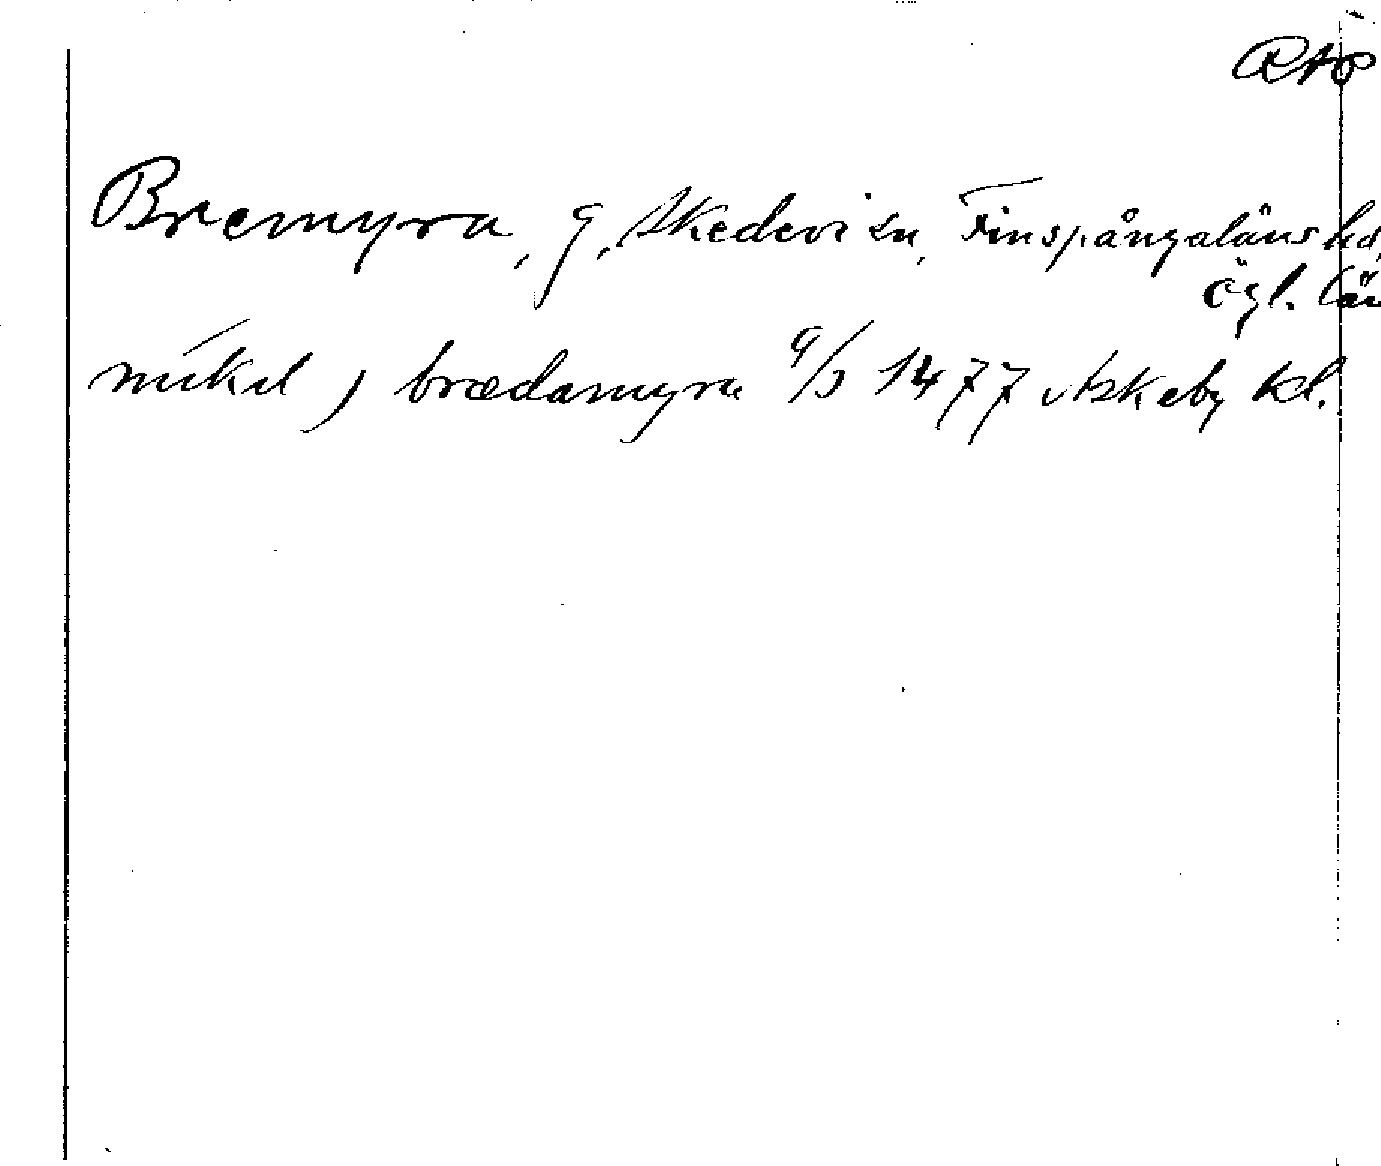 RAP
Bremyra, g, Skedevi sn, Finspångaläns hd,
Ögl. län
mikel j brædamyra 9/3 1477 Askeby kl.